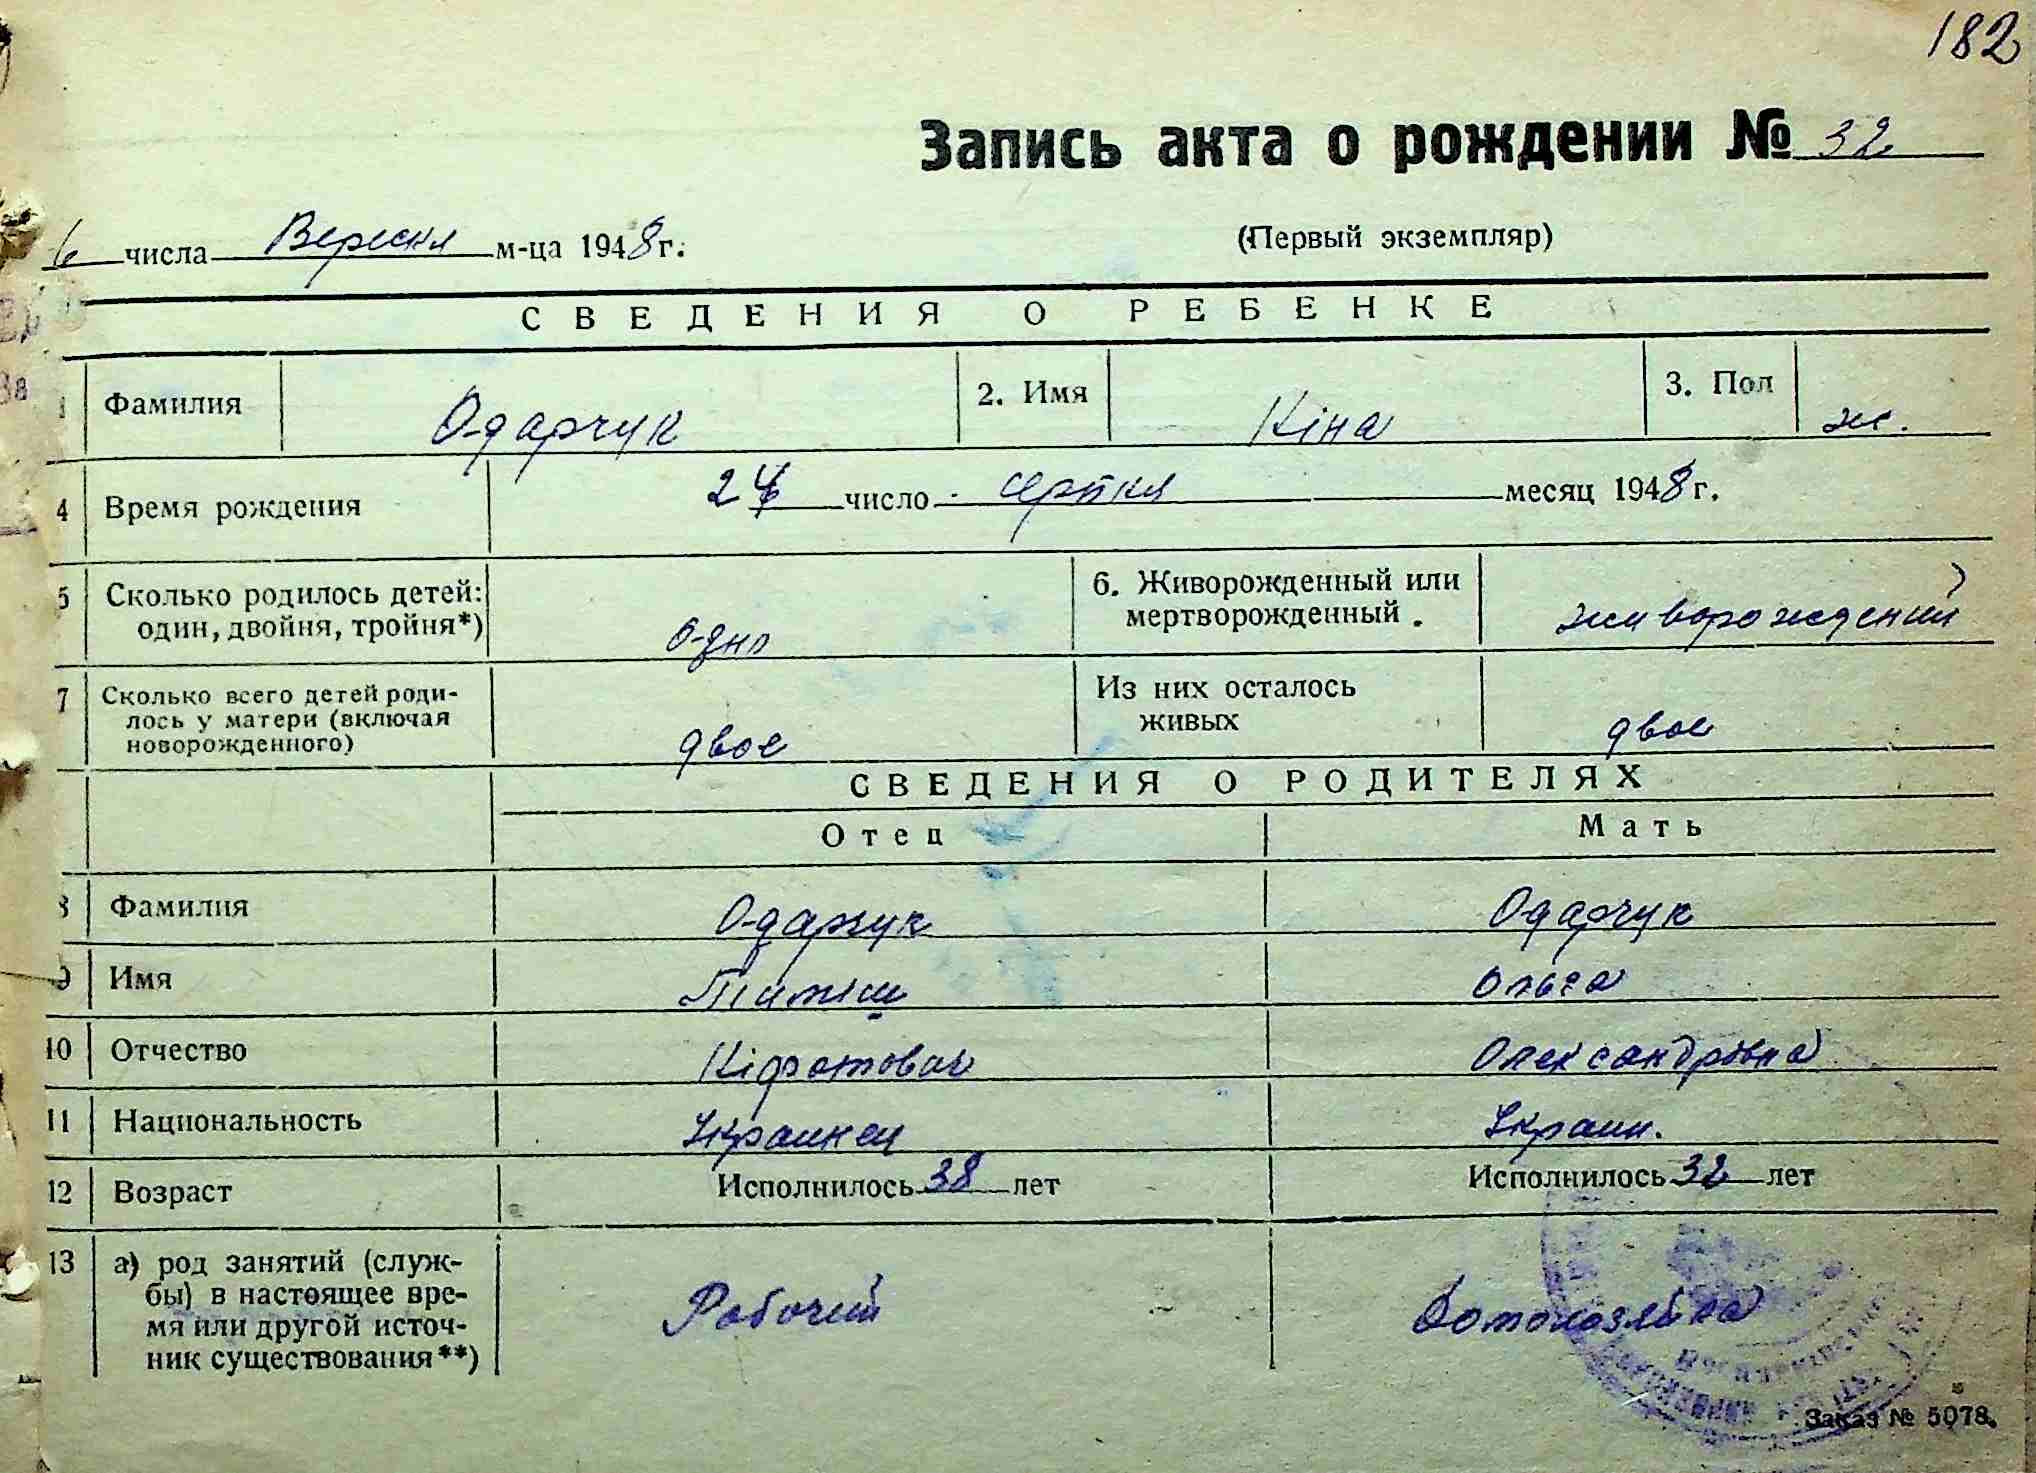 182
Запись акта о рождении № 32
6 числа Вересня м-ца 1948 г.
(Первый экземпляр)
СВЕДЕНИЯ О РЕБЕНКЕ
1 Фамилия Одарчук 2. Имя Ніна 3. Пол ж.
4 Время рождения 24 число серпня месяц 1948 г.
5 Сколько родилось детей: 6. Живорожденный или
один, двойня, тройня*) Одно мертворожденный. живорождений
7 Сколько всего детей роди- Из них осталось
лось у матери (включая живых
новорожденного) двое двое
СВЕДЕНИЯ О РОДИТЕЛЯХ
Отец Мать
8 Фамилия Одарчук Одарчук
9 Имя Ольга
10 Отчество Олександрівна
11 Национальность Украинец Украин.
12 Возраст Исполнилось 38 лет Исполнилось 32 лет
13 а) род занятий (служ-
бы) в настоящее вре-
мя или другой источ- Рабочий Домохозяйка
ник существования**)
Заказ № 5078.